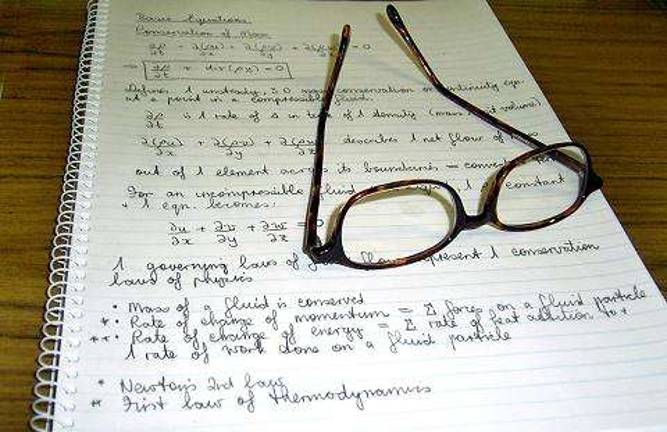 Basic Equations
Conservation of Mass
∂ρ/∂t + ∂(ρu)/∂x + ∂(ρv)/∂y + ∂(ρw)/∂z = 0
⇒ ∂ρ/∂t + div(ρv) = 0
Defines 1 unsteady, 3D mass conservation or continuity eqn.
at a point in a compressible fluid.
∂ρ/∂t is 1 rate of Δ in 1 density (mass volume)
∂(ρu)/∂x + ∂(ρv)/∂y + ∂(ρ describes 1 net flow of
out of 1 element across its boundaries -
For an incompressible fluid 1 constant
+ 1 eqn. becomes:
∂u/∂x + ∂v/∂y + ∂w/∂z = 0
1 governing laws of flow represent 1 conservation
laws of physics
• Mass of a fluid is conserved
*• Rate of change of momentum = Σ forces on a fluid particle
**• Rate of change of energy = Σ rate of heat addition to +
1 rate of work done on a fluid particle
* Newton's 2nd law
** First law of thermodynamics